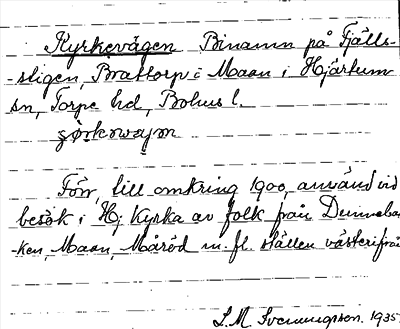 Kyrkevägen Binamn på Fjälls-
-stigen, Brattorp i Maan i Hjärtum
sn, Torpe hd, Bohus l.
Förr, till omkring 1900, använd vid
besök i Hj. Kyrka av folk från Dunneba-
-ken, Maan, Måröd m. fl. ställen västerifrån
L. M. Svenungsson. 1935